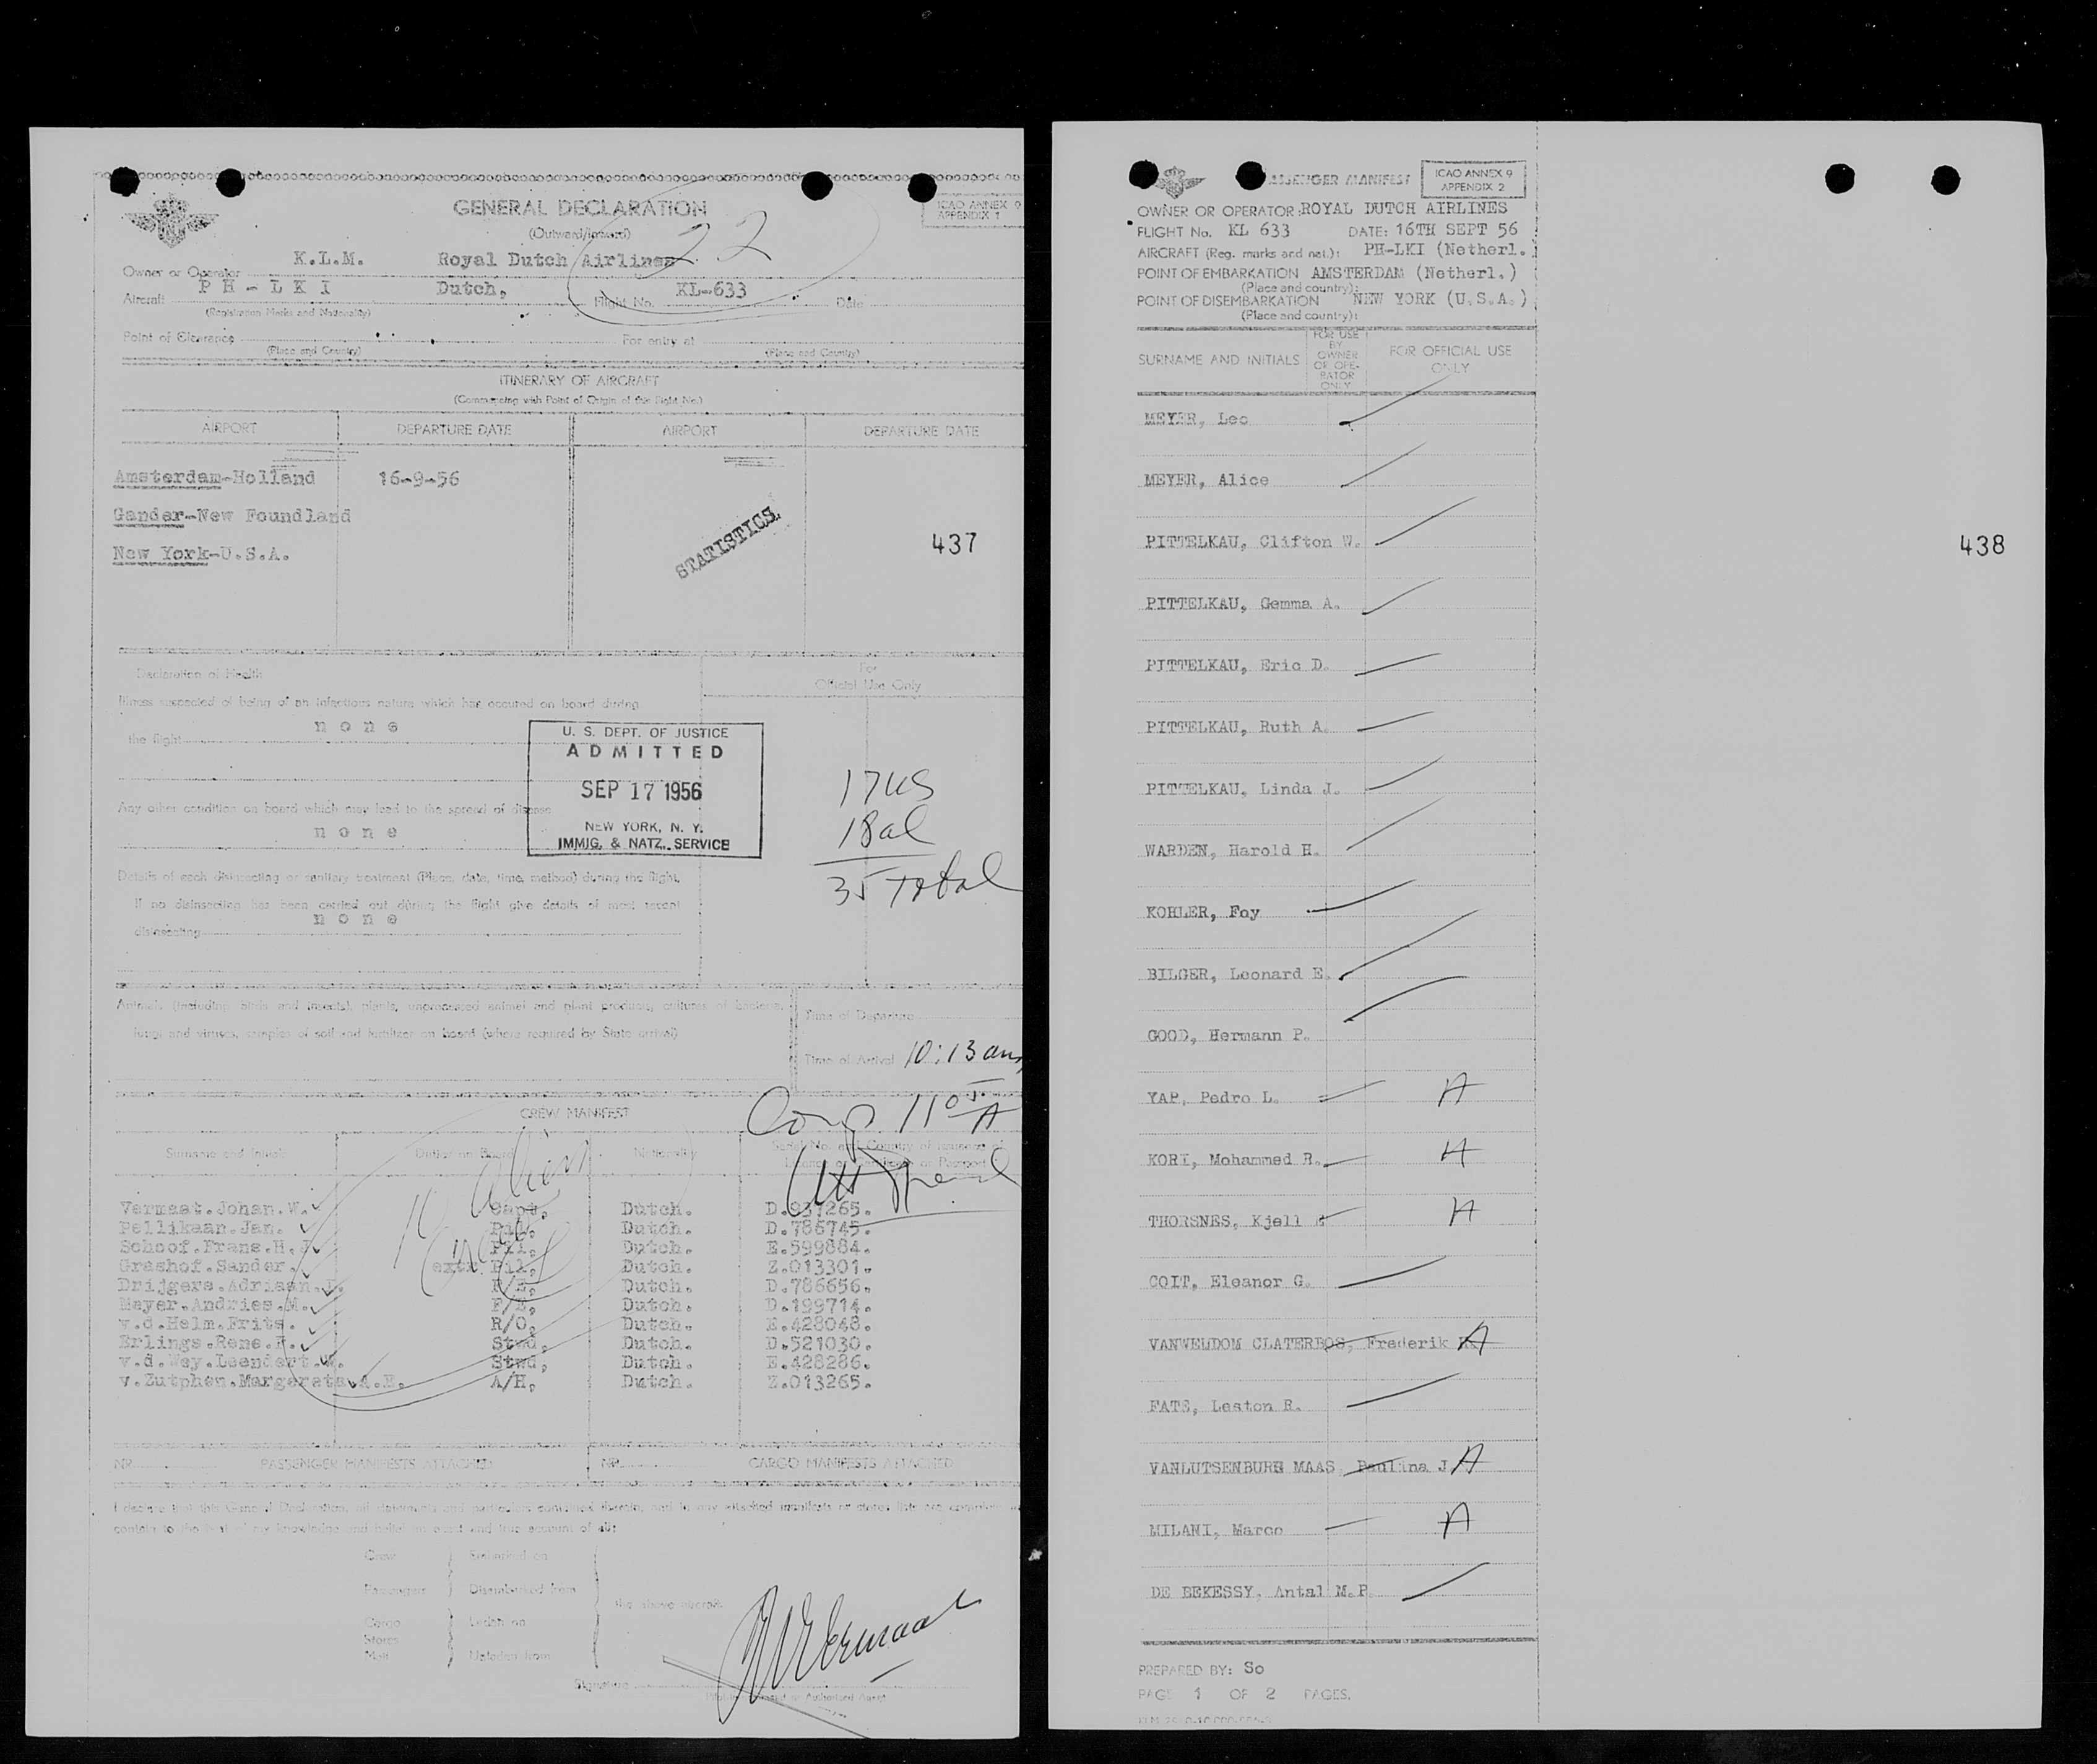 GENERAL DECLARATION
(Outward/Inward)
ICAO ANNEX 9
APPENDIX 1
22
K.L.M. Royal Dutch Airlines
Owner or Operator
PH-LKI Dutch, KL-633
Aircraft Flight No. Date
(Registration Marks and Nationality)
Point of Clearance For entry at
(Place and Country) (Place and Country)
ITINERARY OF AIRCRAFT
(Commencing with Point of Origin of this flight No.)
AIRPORT DEPARTURE DATE AIRPORT DEPARTURE DATE
Amsterdam-Holland 16-9-56
Gander-New Foundland
New York-U.S.A.
STATISTICS.
437
Declaration of Health
For
Official Use Only
Illness suspected of being of an infectious nature which has occured on board during
none
the flight
U. S. DEPT. OF JUSTICE
ADMITTED
SEP 17 1956
NEW YORK, N. Y.
IMMIG. & NATZ. SERVICE
17 US
18 al
35 Total
Any other condition on board which may lead to the spread of disease
none
Details of each disinsecting or sanitary treatment (Place, date, time, method) during the flight.
If no disinsection has been carried out during the flight give details of most recent
none
disinsecting
Animals (including birds and insects), plants, unprocessed animal and plant products, cultures of
fungi and viruses, samples of soil and fertilizer on board (where required by State arrival)
Time of Departure
Time of Arrival 10:13 am
CREW MANIFEST
Surname and Initials Duties on Board Nationality
10 alien
crew
Vermaat.Johan.W. Capt, Dutch. D.937265.
Pellikaan.Jan. Pil, Dutch. D.786745.
Schoof.Frans.H. Pil, Dutch. E.599884.
Grashof.Sander. extr Pil, Dutch. Z.013301.
Drijgers.Adriaan. F/E, Dutch. D.786656.
Meyer.Andries.M. F/E, Dutch. D.199714.
v.d.Helm.Frits. R/O, Dutch. E.428048.
Erlings.Rene.F. Stwd, Dutch. D.521030.
v.d.Wey.Leendert.W. Stwd, Dutch. E.428286.
v.Zutphen.Margareta.A.E. A/H, Dutch. Z.013265.
NR. PASSENGER MANIFESTS ATTACHED NR. CARGO MANIFESTS ATTACHED
Crew Embarked on
Passengers Disembarked from
the above aircraft.
Cargo Laden on
Stores
Mail Unladen from
Signature
PASSENGER MANIFEST
ICAO ANNEX 9
APPENDIX 2
OWNER OR OPERATOR: ROYAL DUTCH AIRLINES
FLIGHT No. KL 633 DATE: 16TH SEPT 56
AIRCRAFT (Reg. marks and nat.): PH-LKI (Netherl.)
POINT OF EMBARKATION AMSTERDAM (Netherl.)
(Place and country):
POINT OF DISEMBARKATION NEW YORK (U.S.A.)
(Place and country):
SURNAME AND INITIALS
FOR USE BY OWNER OR OPE-RATOR ONLY
FOR OFFICIAL USE ONLY
MEYER, Leo
MEYER, Alice
PITTELKAU, Clifton W.
438
PITTELKAU, Gemma A.
PITTELKAU, Eric D.
PITTELKAU, Ruth A.
PITTELKAU, Linda J.
WARDEN, Harold H.
KOHLER, Foy
BILGER, Leonard E.
GOOD, Hermann P.
YAP, Pedro L. A
KORI, Mohammed R. A
THORSNES, Kjell A
COIT, Eleanor G.
VANWELDOM CLATERBOS, Frederik A
FATE, Leston R.
VANLUTSENBURH MAAS, Paulina J A
MILANI, Marco A
DE BEKESSY, Antal M.P.
PREPARED BY: So
PAGE 1 OF 2 PAGES.